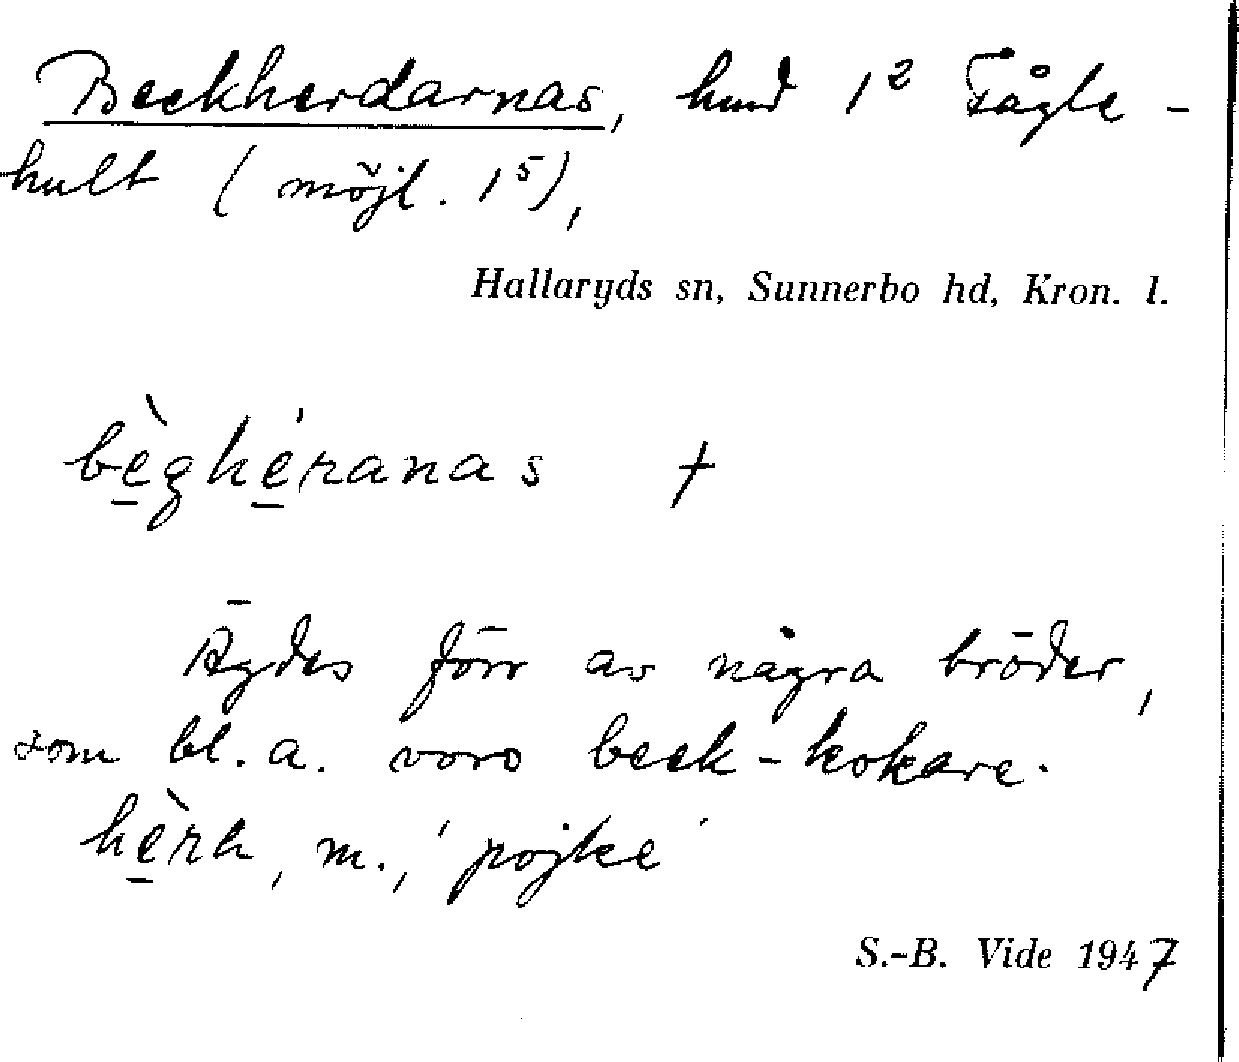 Beckherdarnas, hmd 1² Fågle-
hult (möjl. 1⁵),
Hallaryds sn, Sunnerbo hd, Kron. l.
bè̱ghé̱ranas †
Ägdes förr av några bröder,
som bl. a. voro beck-kokare.
hè̱ra, m., 'pojke'
S.-B. Vide 1947